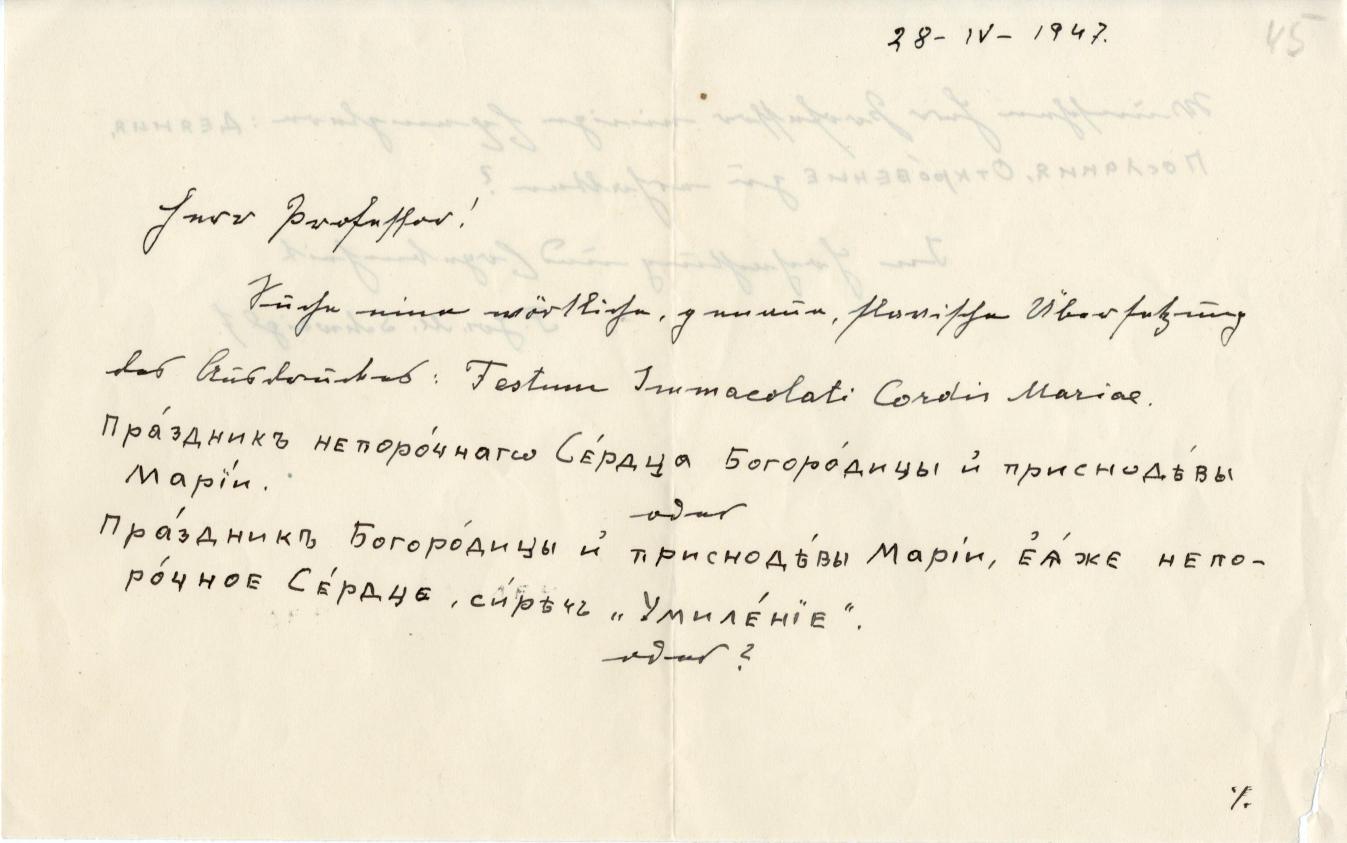 28 - IV - 1947.
45
Herr Professor!
Suche eine wörtliche, genaue, slavische Übersetzung
des Ausdruckes: Festum Immacolati Cordis Mariae.
Пра́здникъ непоро́чнагѡ Се́рдца Богоро́дицы и҆ приснодѣ́вы
Марі́и.
oder
Пра́здникъ Богоро́дицы и҆ приснодѣ́вы Марі́и, є҆ѧ́же непо-
ро́чное Се́рдце, си́рѣчь „Умиле́нїе“.
oder?
·/.